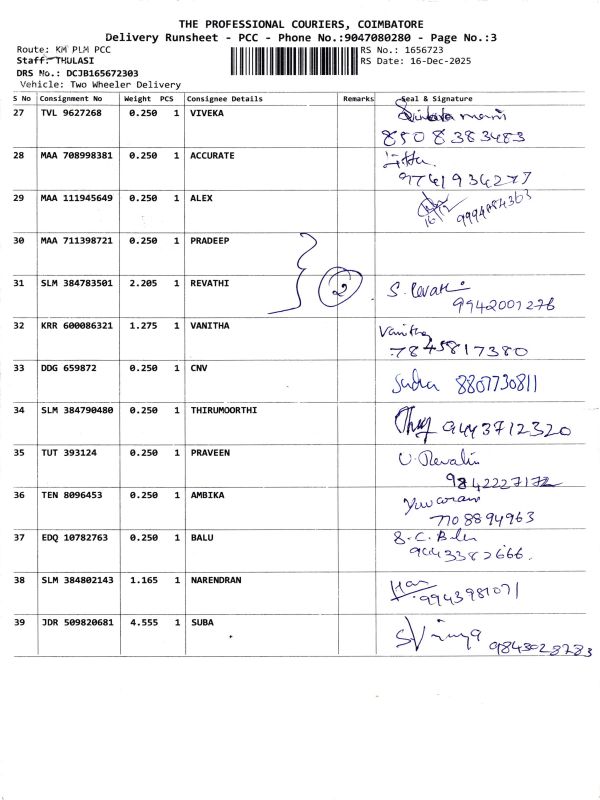 THE PROFESSIONAL COURIERS, COIMBATORE
Delivery Runsheet - PCC - Phone No.:9047080280 - Page No.:3
Route: KM PLM PCC RS No.: 1656723
Staff: THULASI RS Date: 16-Dec-2025
DRS No.: DCJB165672303
Vehicle: Two Wheeler Delivery
S No Consignment No Weight PCS Consignee Details Remarks Seal & Signature
27 TVL 9627268 0.250 1 VIVEKA
8508383483
28 MAA 708998381 0.250 1 ACCURATE
9741934277
29 MAA 111945649 0.250 1 ALEX
16/12 9994884363
30 MAA 711398721 0.250 1 PRADEEP
2
31 SLM 384783501 2.205 1 REVATHI S. Revathi
9942001276
32 KRR 600086321 1.275 1 VANITHA Vanitha
7845817380
33 DDG 659872 0.250 1 CNV Sudha 8807730811
34 SLM 384790480 0.250 1 THIRUMOORTHI 9443712320
35 TUT 393124 0.250 1 PRAVEEN
9842227172
36 TEN 8096453 0.250 1 AMBIKA
7708894963
37 EDQ 10782763 0.250 1 BALU
9443382666.
38 SLM 384802143 1.165 1 NARENDRAN
9943981071
39 JDR 509820681 4.555 1 SUBA
9843028283